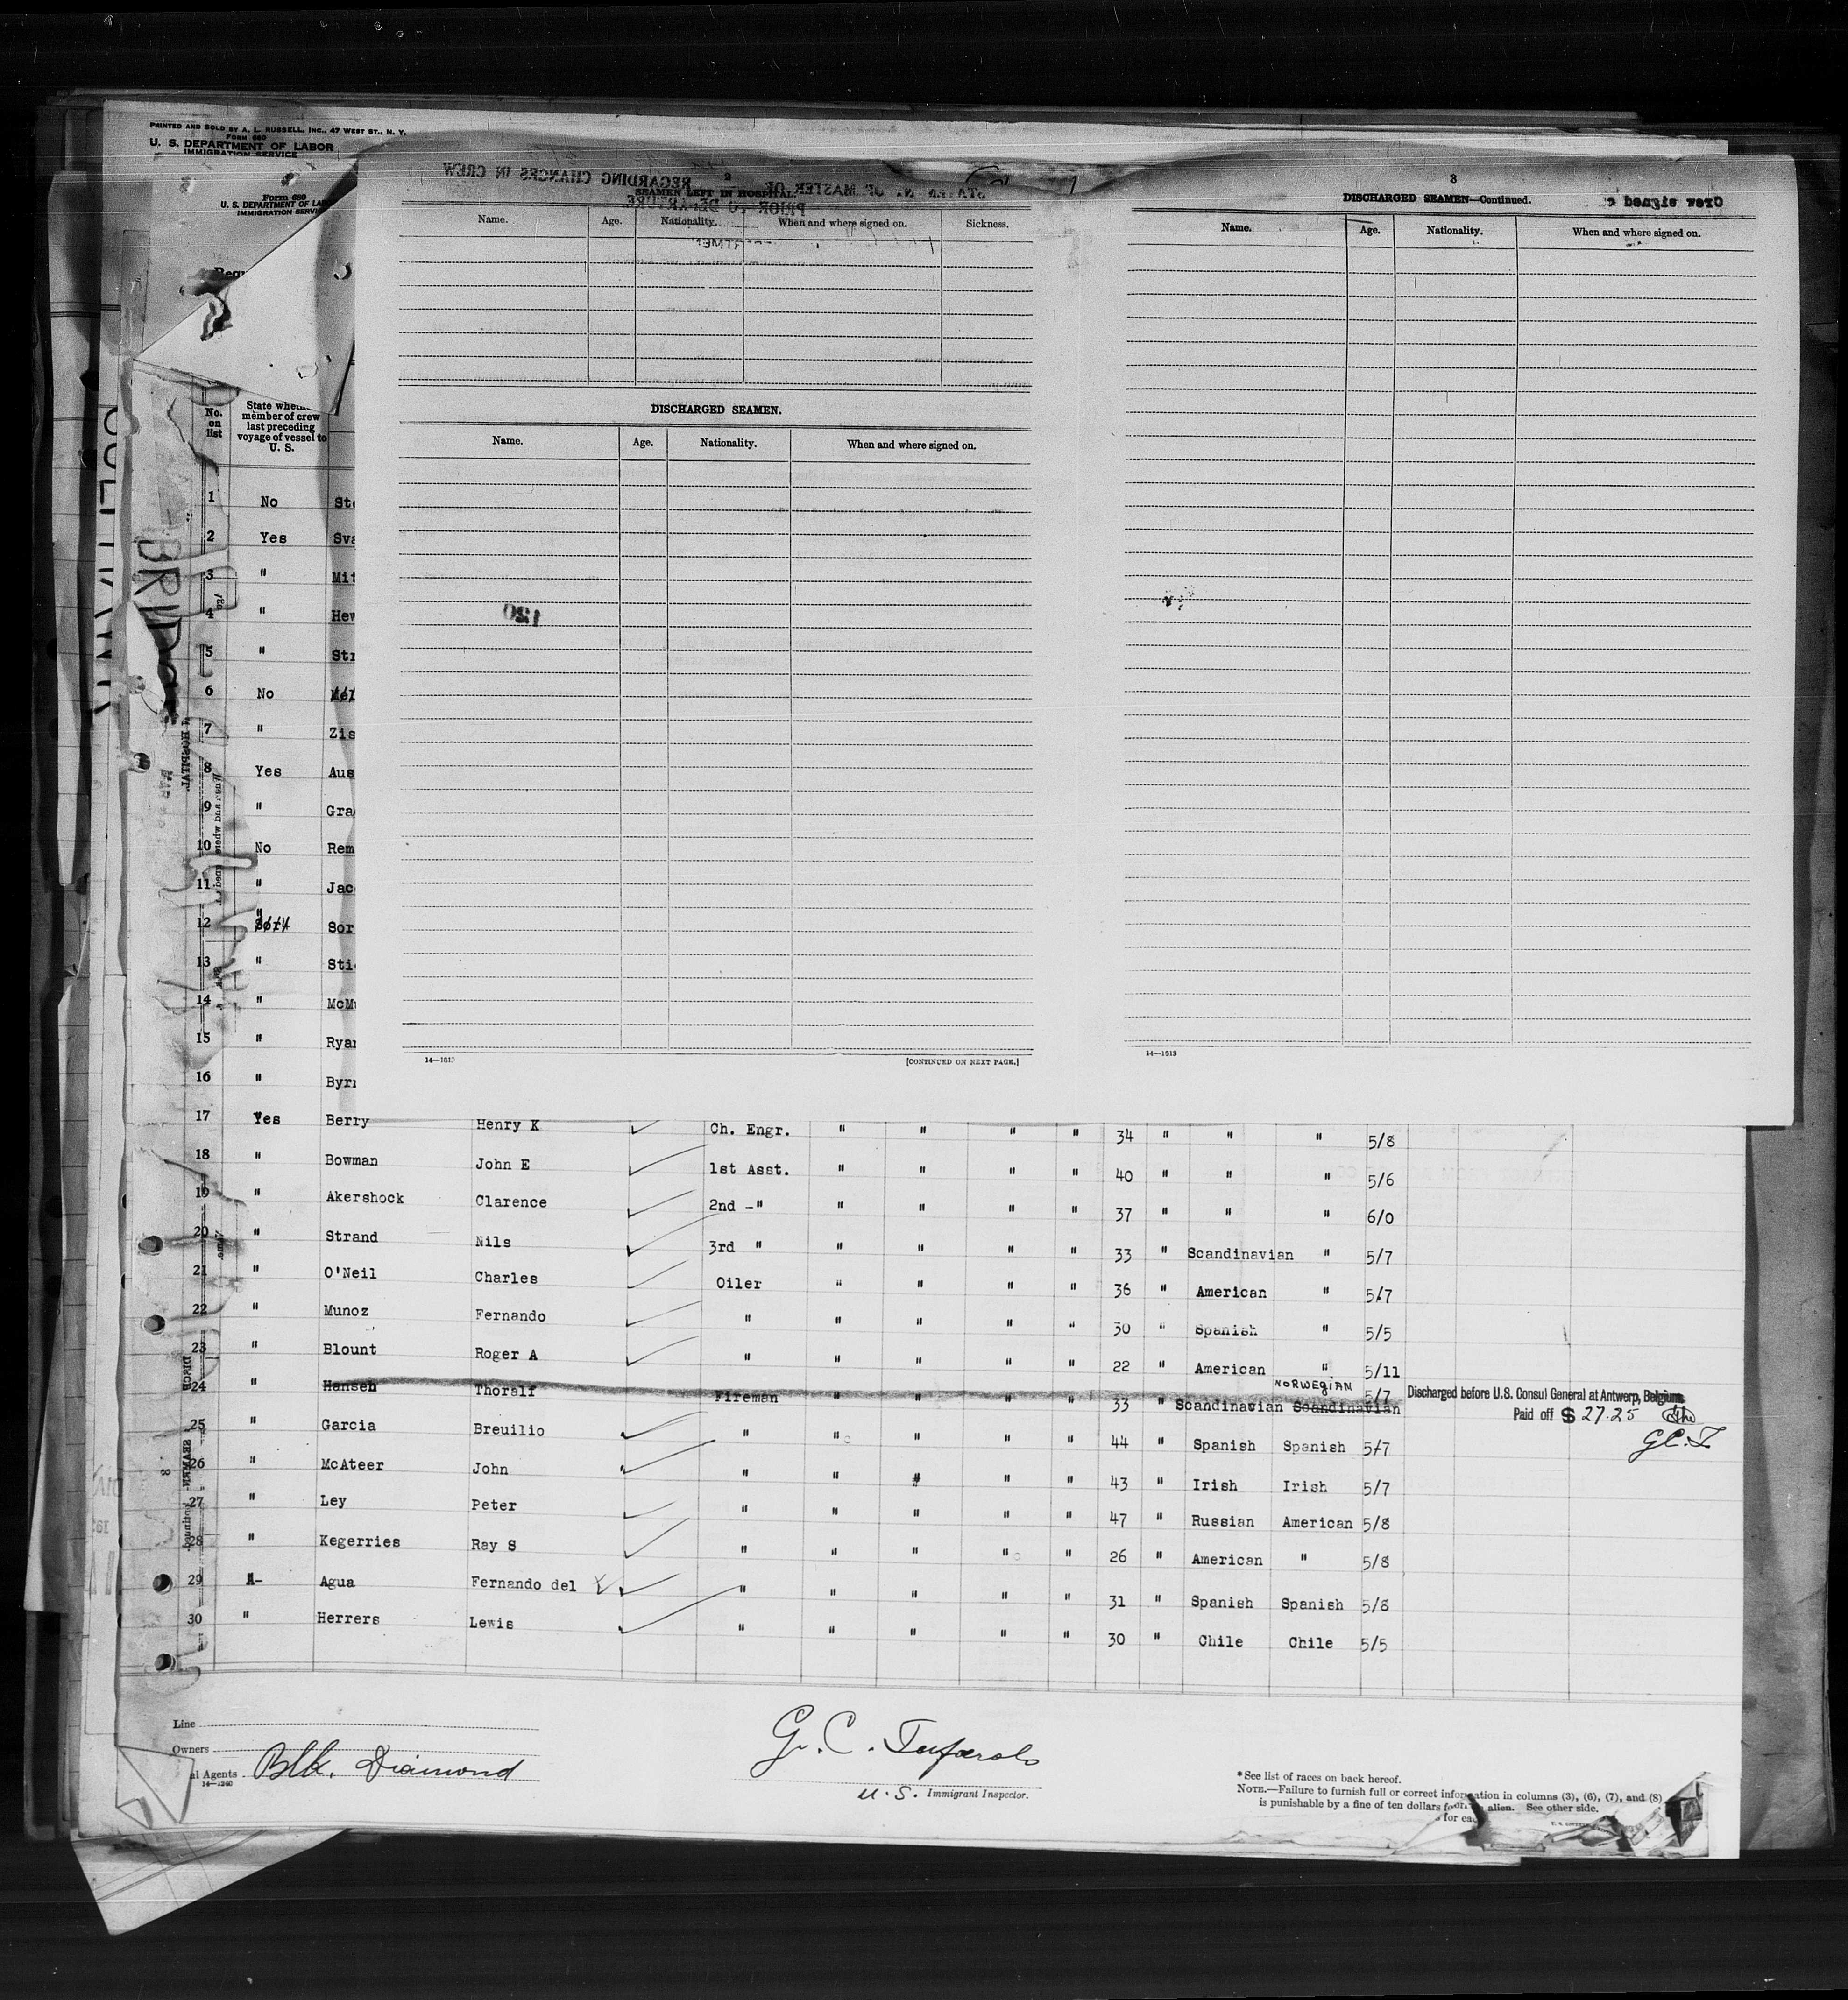 PRINTED AND SOLD BY A. L. RUSSELL, INC., 47 WEST ST., N. Y.
FORM 680
U. S. DEPARTMENT OF LABOR
IMMIGRATION SERVICE
Form 680
U. S. DEPARTMENT OF LAB
IMMIGRATION SERVI
2
SEAMEN LEFT IN HOSPITAL.
Name. Age. Nationality. When and where signed on. Sickness.
DISCHARGED SEAMEN.
Name. Age. Nationality. When and where signed on.
14—1613
[CONTINUED ON NEXT PAGE.]
3
DISCHARGED SEAMEN—Continued.
Name. Age. Nationality. When and where signed on.
14—1613
No. on list
State whether member of crew last preceding voyage of vessel to U. S.
1 No Ste
2 Yes Sva
3 " Mit
4 " Hew
5 " Str
6 No
7 " Zis
8 Yes Aus
9 " Gra
10 No Rem
11 " Jac
12 " Sor
13 " Sti
14 " McM
15 " Rya
16 " Byr
17 Yes Berry Henry K Ch. Engr. " " " " 34 " " " 5/8
18 " Bowman John E 1st Asst. " " " " 40 " " " 5/6
19 " Akershock Clarence 2nd -" " " " " 37 " " " 6/0
20 " Strand Nils 3rd " " " " " 33 " Scandinavian " 5/7
21 " O'Neil Charles Oiler " " " " 36 " American " 5/7
22 " Munoz Fernando " " " " " 30 " Spanish " 5/5
23 " Blount Roger A " " " " " 22 " American " 5/11
24 " Hansen Thoralf Fireman " " " " 33 " Scandinavian Scandinavian NORWEGIAN 5/7 Discharged before U.S. Consul General at Antwerp, Belgium.
Paid off $ 27.25
G.C.T
25 " Garcia Breuilio " " " " " 44 " Spanish Spanish 5/7
26 " McAteer John " " " " " 43 " Irish Irish 5/7
27 " Ley Peter " " " " " 47 " Russian American 5/8
28 " Kegerries Ray S " " " " " 26 " American " 5/8
29 Agua Fernando del " " " " " 31 " Spanish Spanish 5/8
30 " Herrers Lewis " " " " " 30 " Chile Chile 5/5
Line
Owners
al Agents Blk. Diamond
14—1240
G. C. Tufarolo
U.S. Immigrant Inspector.
*See list of races on back hereof.
NOTE.—Failure to furnish full or correct information in columns (3), (6), (7), and (8)
is punishable by a fine of ten dollars for alien. See other side.